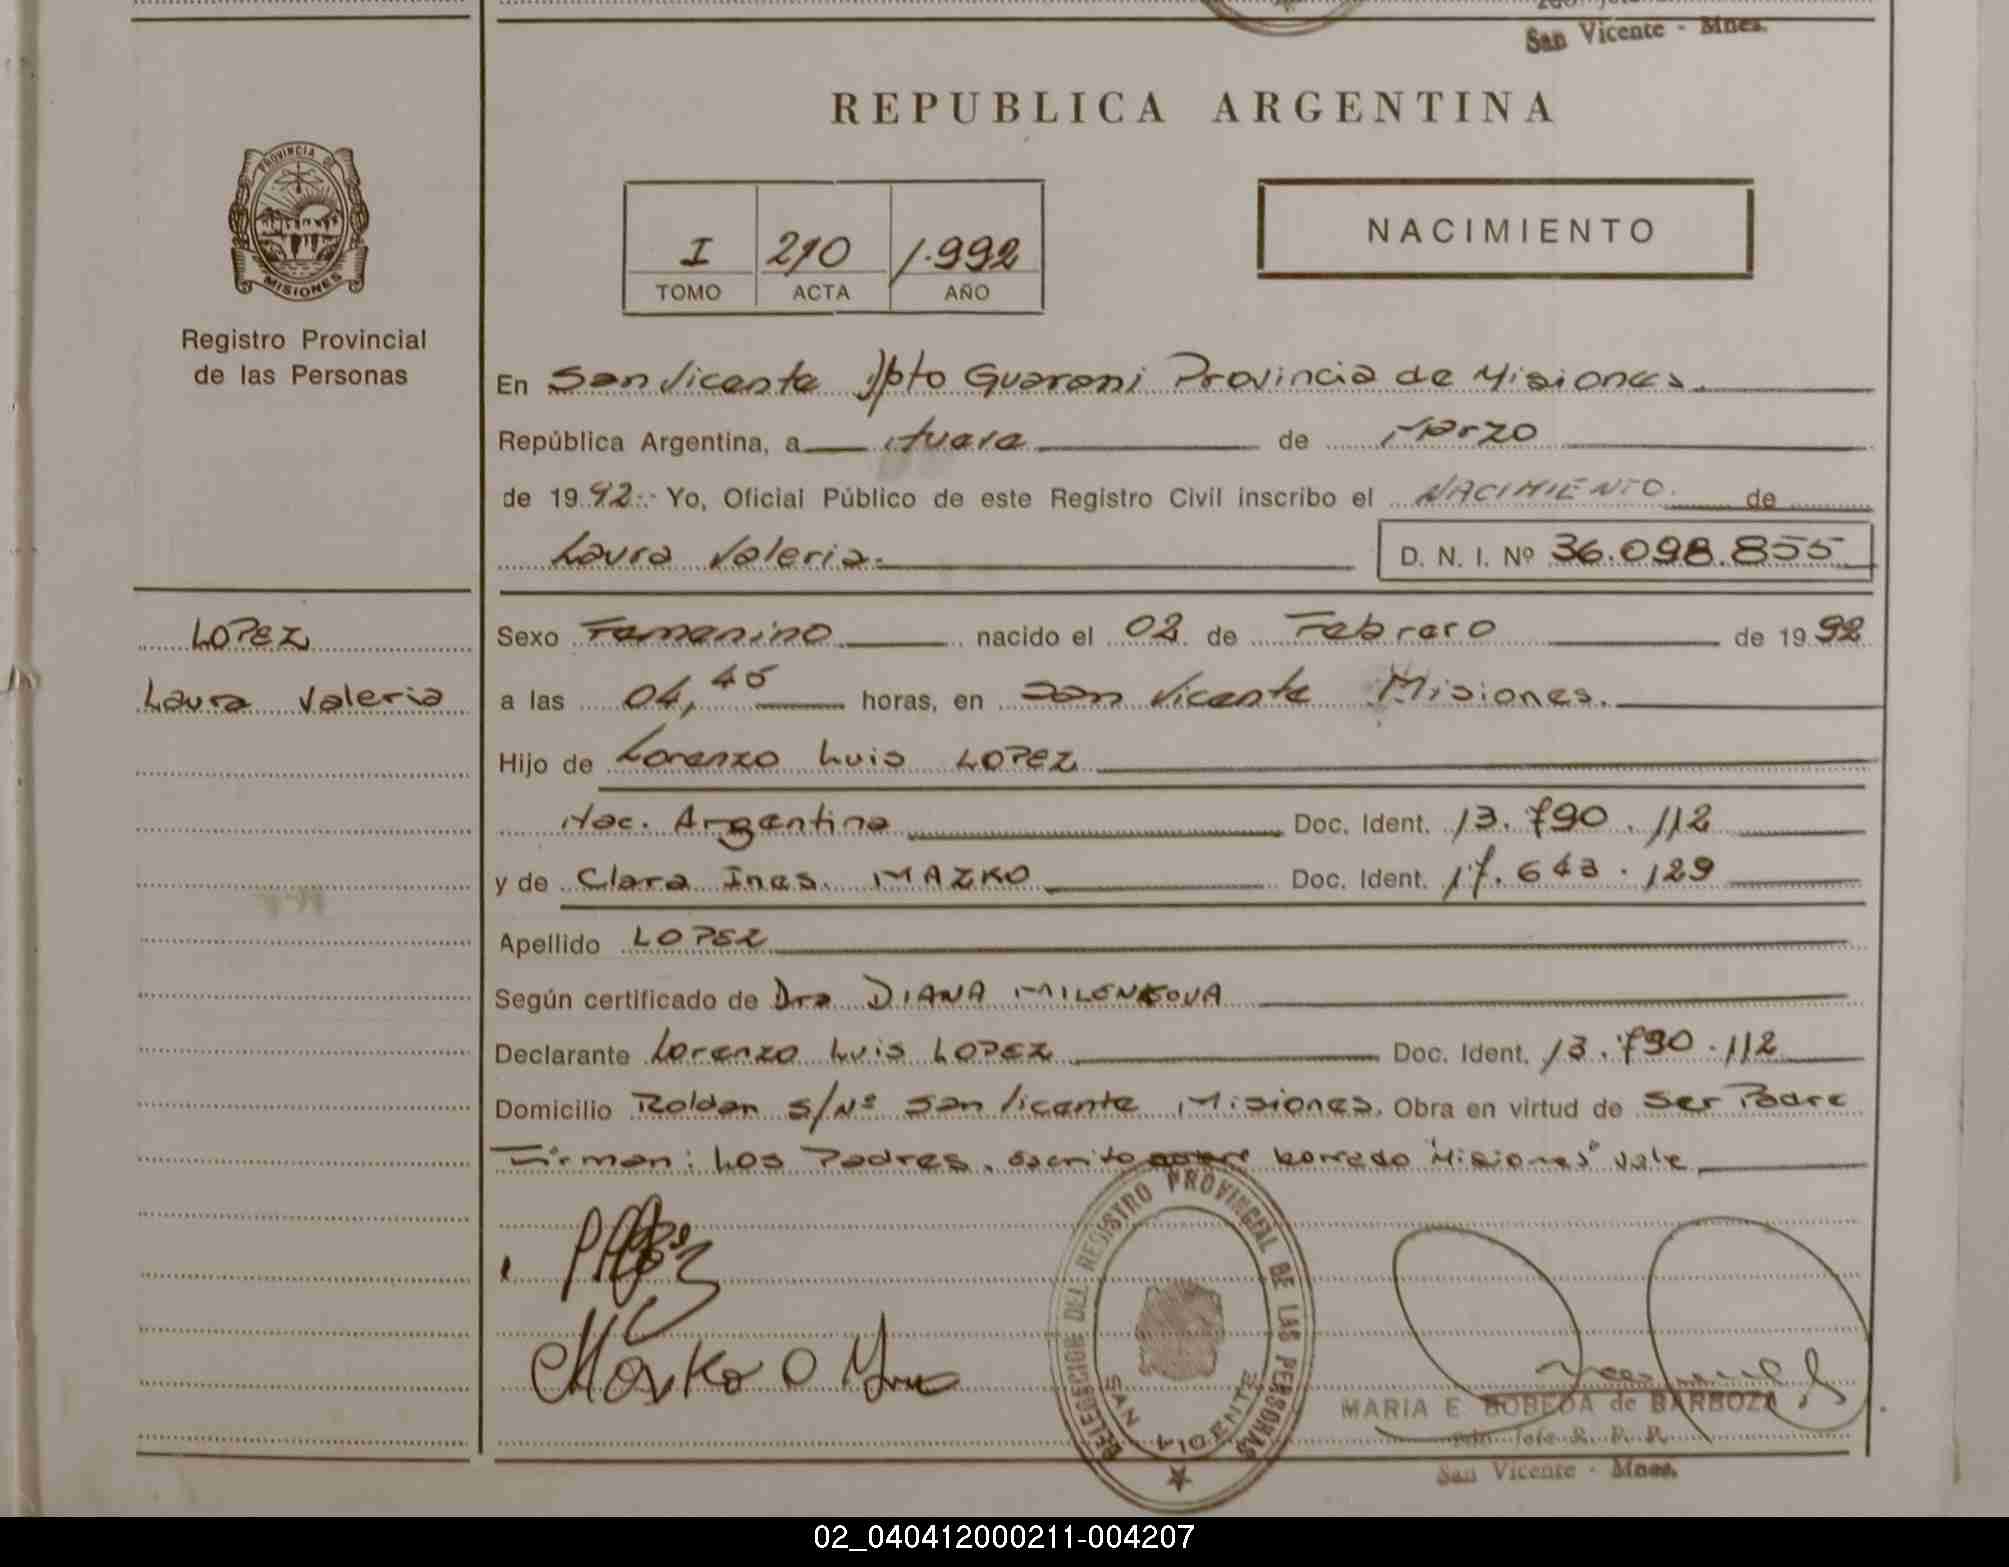 San Vicente - Mnes.
REPUBLICA ARGENTINA
PROVINCIA DE
MISIONES
Registro Provincial
de las Personas
I 210 1.992
TOMO ACTA AÑO
NACIMIENTO
En San Vicente Dpto Guarani Provincia de Misiones.
República Argentina, a Nueve de Marzo
de 1992.- Yo, Oficial Público de este Registro Civil inscribo el NACIMIENTO. de
Laura Valeria.
D. N. I. Nº 36.098.855
LOPEZ
Laura Valeria
Sexo Femenino nacido el 02 de Febrero de 1992
a las 04,45 horas, en San Vicente Misiones.
Hijo de Lorenzo Luis LOPEZ
Nac. Argentina Doc. Ident. 13.790.112
y de Clara Ines. MAZKO Doc. Ident. 17.643.129
Apellido LOPEZ
Según certificado de Dra DIANA MILENKOVA
Declarante Lorenzo Luis LOPEZ Doc. Ident. 13.790.112
Domicilio Roldan S/Nº San Vicente Misiones. Obra en virtud de Ser Padre
Firman: Los Padres. Escrito sobre borrado "Misiones" Vale
DELEGACION DEL REGISTRO PROVINCIAL DE LAS PERSONAS
SAN VICENTE
MARIA E BOBEDA de BARBOZA
2do. Jefe R. P. P.
San Vicente - Mnes.
02_040412000211-004207